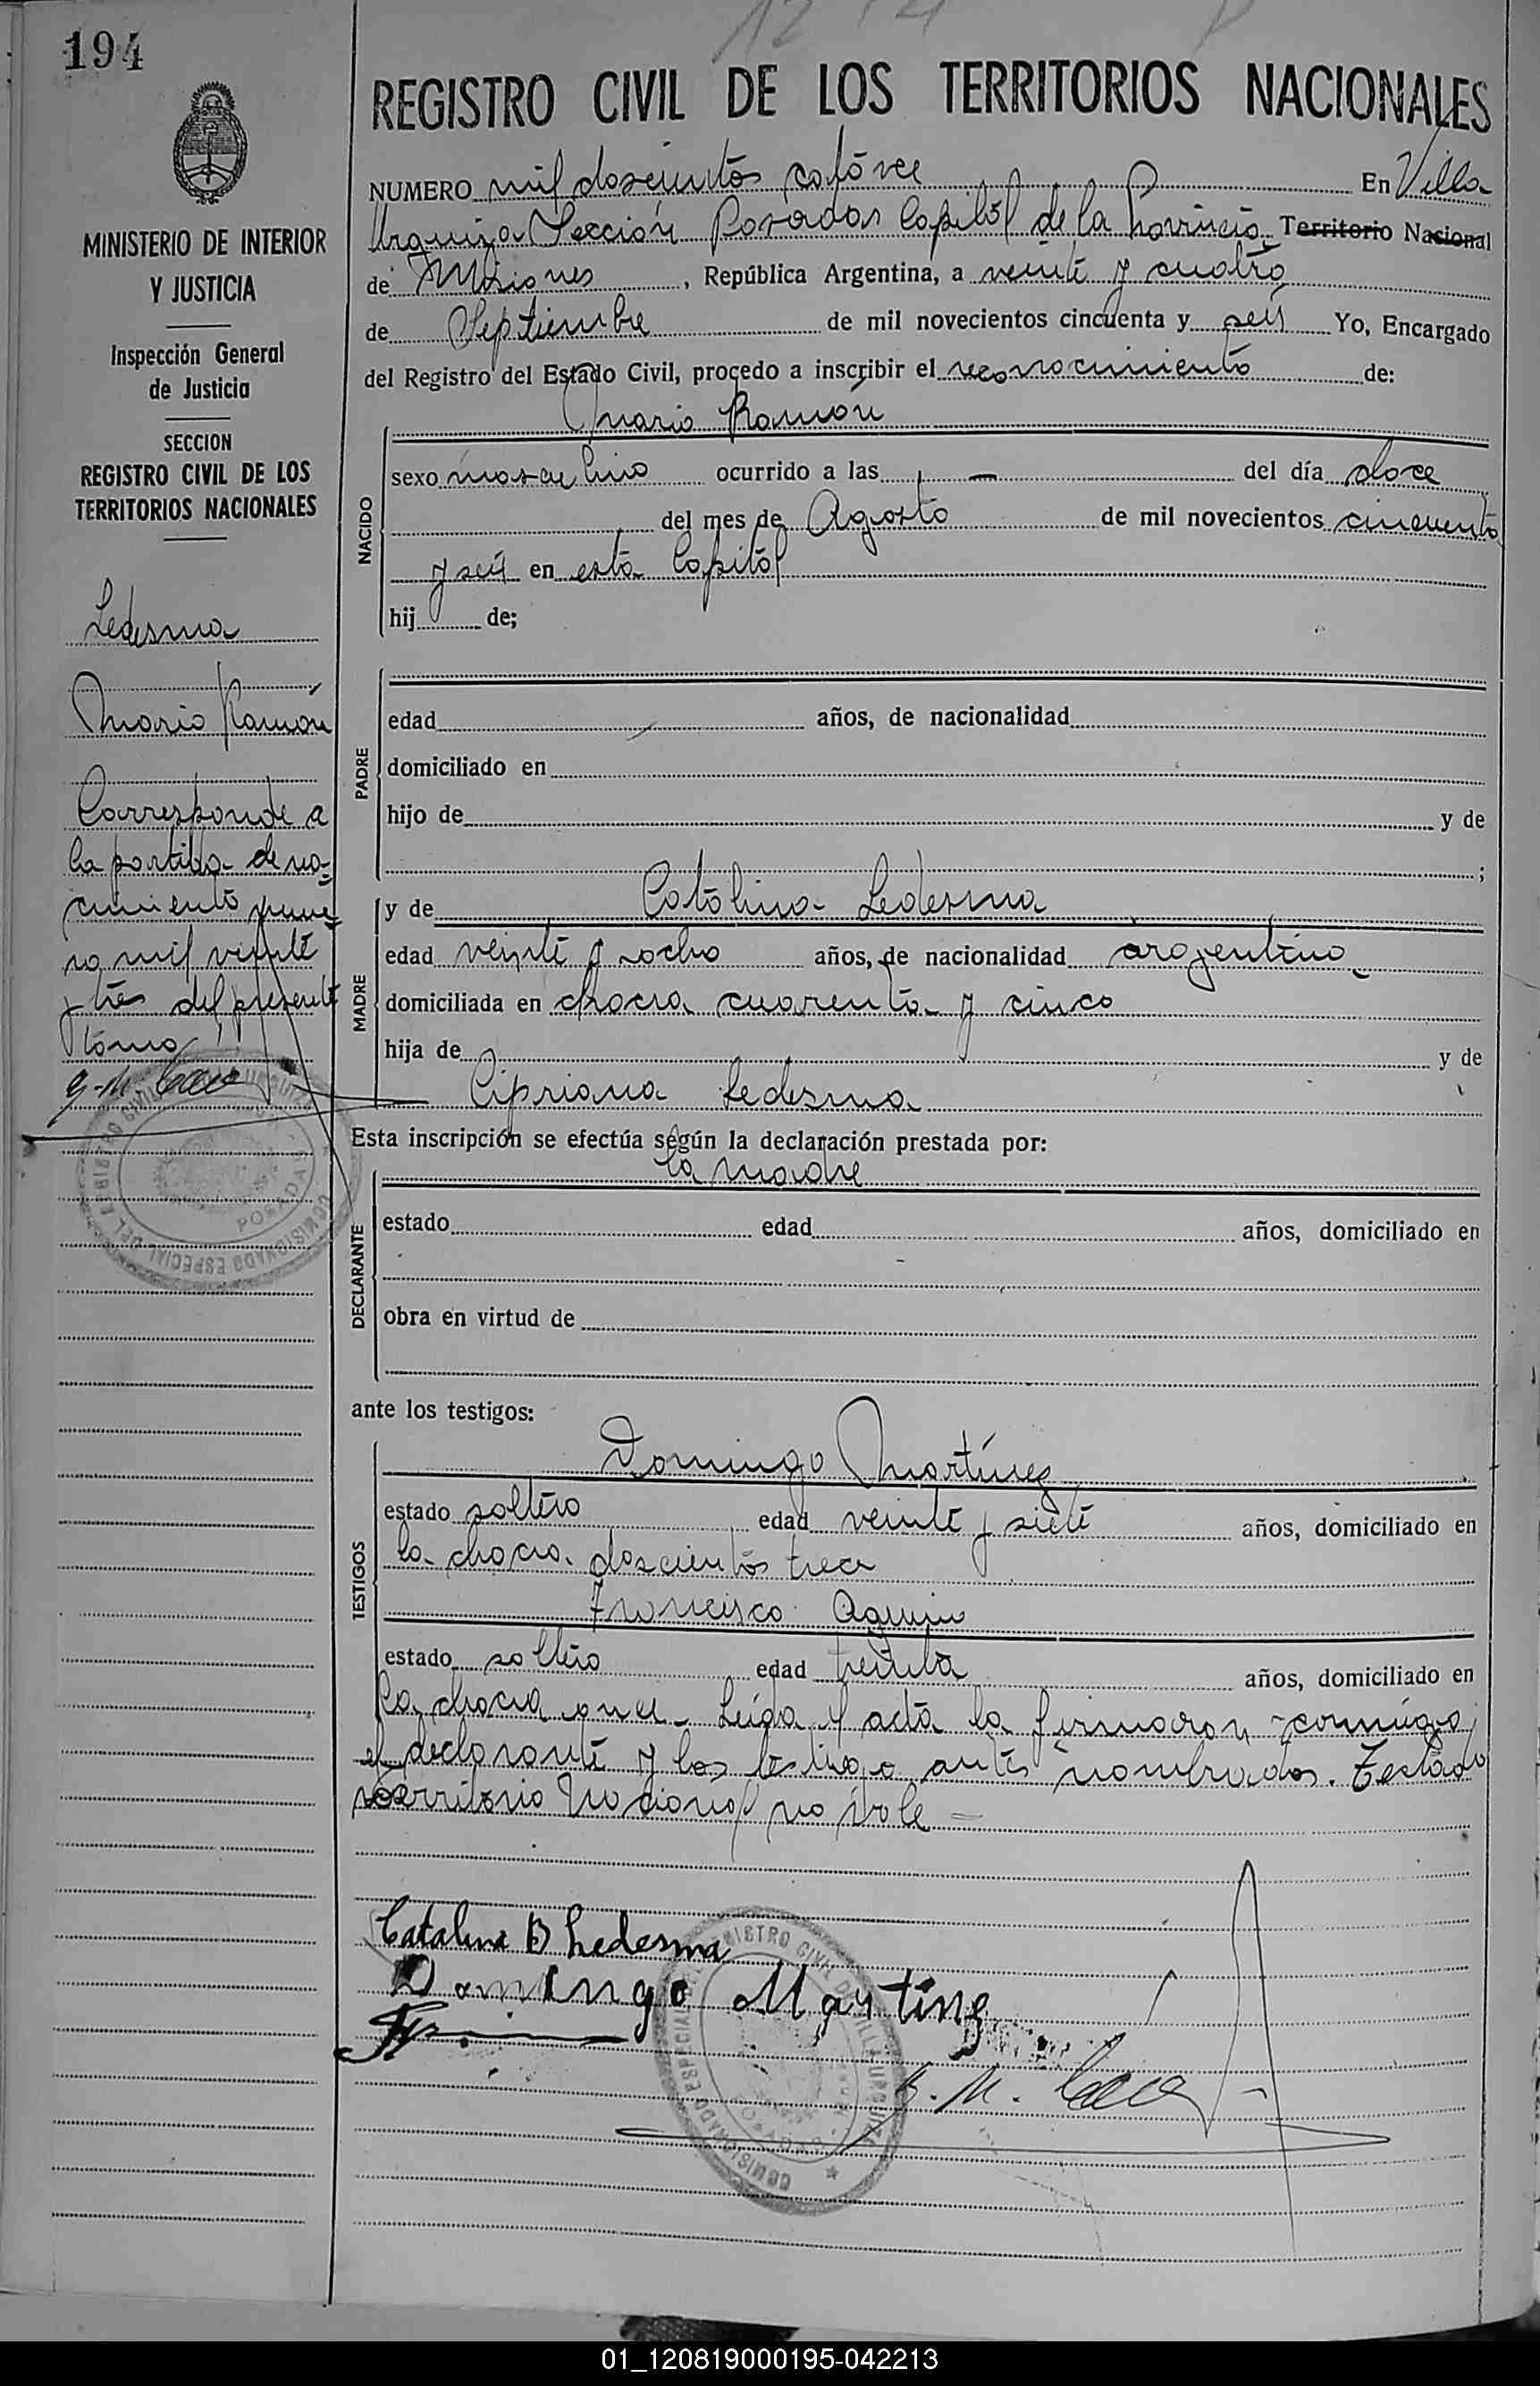 194
12 14
REGISTRO CIVIL DE LOS TERRITORIOS NACIONALES
MINISTERIO DE INTERIOR
Y JUSTICIA
Inspección General
de Justicia
SECCION
REGISTRO CIVIL DE LOS
TERRITORIOS NACIONALES
Ledesma
Mario Ramón
Corresponde a
la partida de na-
cimiento núme-
ro mil veinte
y tres del presente
tomo
NUMERO mil doscientos catorce En Villa
Urquiza Sección Posadas Capital de la Provincia Territorio Nacional
de Misiones, República Argentina, a veinte y cuatro
de Septiembre de mil novecientos cincuenta y seis Yo, Encargado
del Registro del Estado Civil, procedo a inscribir el reconocimiento de:
Mario Ramón
NACIDO
sexo masculino ocurrido a las — del día doce
del mes de Agosto de mil novecientos cincuenta
y seis en esta Capital
hij de;
PADRE
edad años, de nacionalidad
domiciliado en
hijo de y de
;
MADRE
y de Catalina Ledesma
edad veinte y ocho años, de nacionalidad argentina
domiciliada en chacra cuarenta y cinco
hija de y de
Cipriana Ledesma
Esta inscripción se efectúa según la declaración prestada por:
la madre
DECLARANTE
estado edad años, domiciliado en
obra en virtud de
ante los testigos:
TESTIGOS
Domingo Martínez
estado soltero edad veinte y siete años, domiciliado en
la chacra doscientos trece
Francisco Aquino
estado soltero edad treinta años, domiciliado en
la chacra once. Leída el acta la firmaron conmigo
el declarante y los testigo antes nombrados. Testado
territorio Nacional no vale —
Catalina B Ledesma
Domingo Martinez
COMISIONADO ESPECIAL DEL REGISTRO CIVIL DE VILLA URQUIZA
POSADAS
01_120819000195-042213